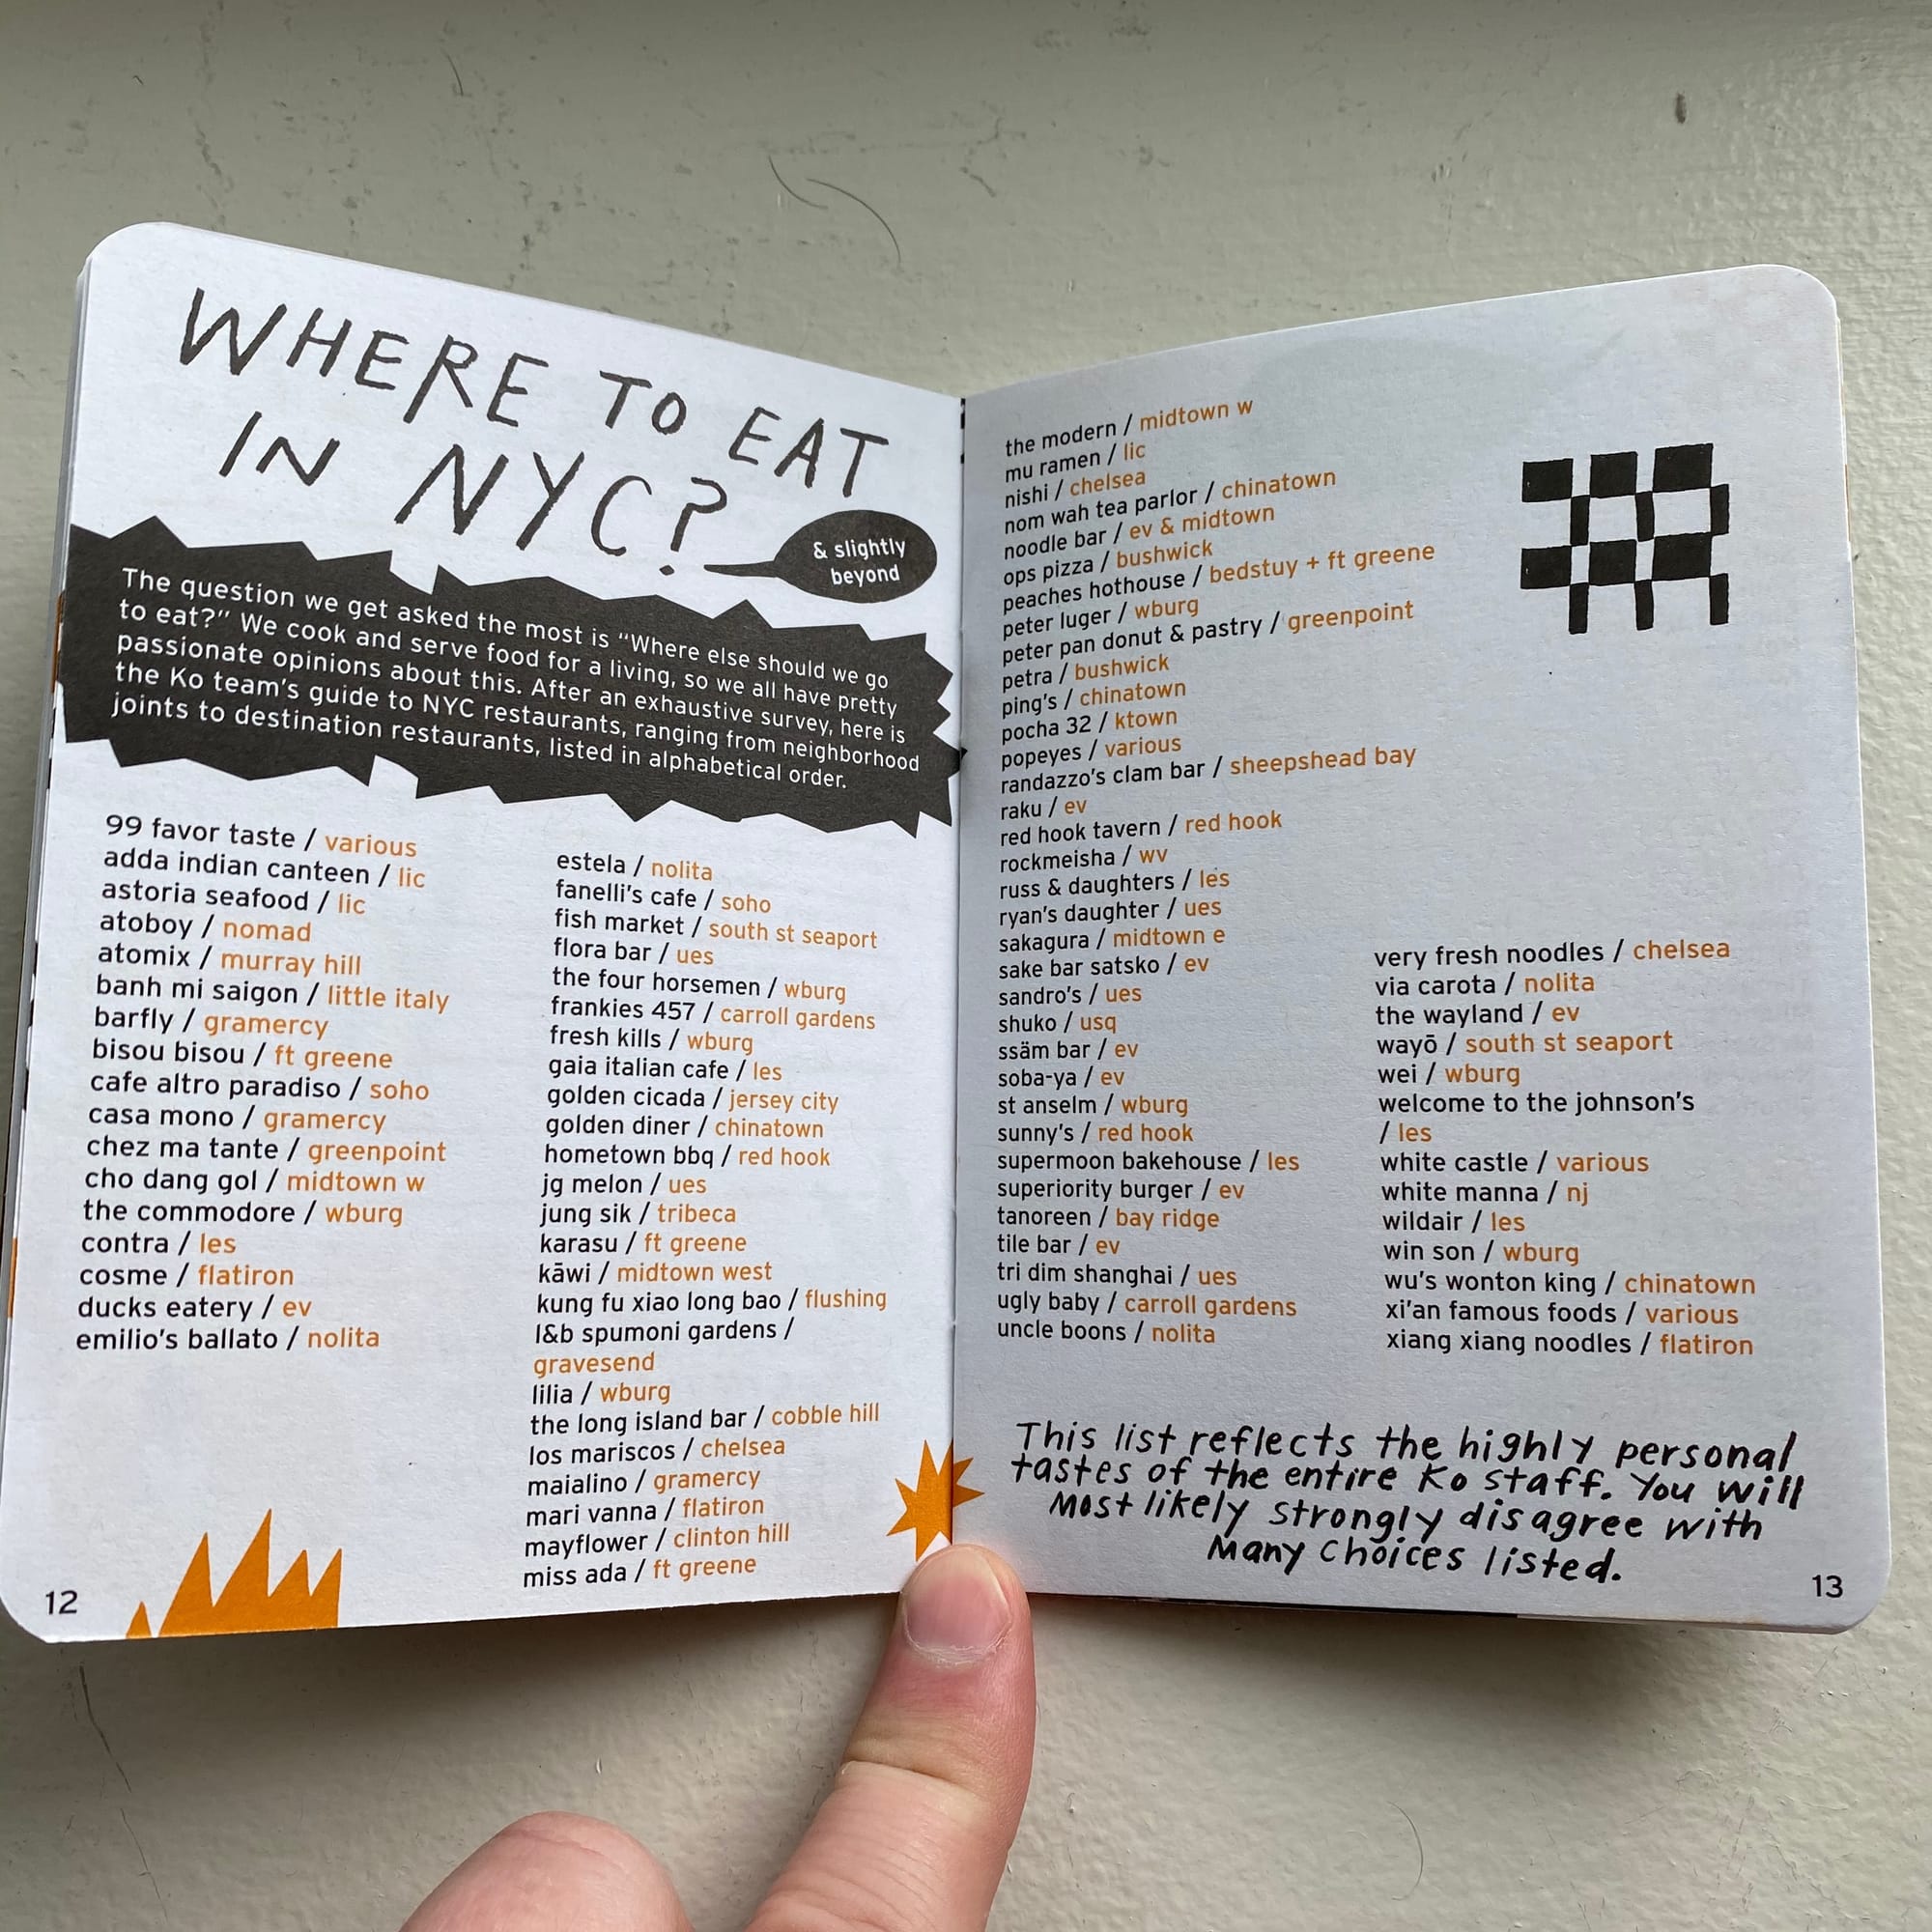 WHERE TO EAT
IN NYC?
& slightly
beyond
The question we get asked the most is “Where else should we go
to eat?” We cook and serve food for a living, so we all have pretty
passionate opinions about this. After an exhaustive survey, here is
the Ko team’s guide to NYC restaurants, ranging from neighborhood
joints to destination restaurants, listed in alphabetical order.
99 favor taste / various
adda indian canteen / lic
astoria seafood / lic
atoboy / nomad
atomix / murray hill
banh mi saigon / little italy
barfly / gramercy
bisou bisou / ft greene
cafe altro paradiso / soho
casa mono / gramercy
chez ma tante / greenpoint
cho dang gol / midtown w
the commodore / wburg
contra / les
cosme / flatiron
ducks eatery / ev
emilio’s ballato / nolita
estela / nolita
fanelli’s cafe / soho
fish market / south st seaport
flora bar / ues
the four horsemen / wburg
frankies 457 / carroll gardens
fresh kills / wburg
gaia italian cafe / les
golden cicada / jersey city
golden diner / chinatown
hometown bbq / red hook
jg melon / ues
jung sik / tribeca
karasu / ft greene
kāwi / midtown west
kung fu xiao long bao / flushing
l&b spumoni gardens /
gravesend
lilia / wburg
the long island bar / cobble hill
los mariscos / chelsea
maialino / gramercy
mari vanna / flatiron
mayflower / clinton hill
miss ada / ft greene
12
the modern / midtown w
mu ramen / lic
nishi / chelsea
nom wah tea parlor / chinatown
noodle bar / ev & midtown
ops pizza / bushwick
peaches hothouse / bedstuy + ft greene
peter luger / wburg
peter pan donut & pastry / greenpoint
petra / bushwick
ping’s / chinatown
pocha 32 / ktown
popeyes / various
randazzo’s clam bar / sheepshead bay
raku / ev
red hook tavern / red hook
rockmeisha / wv
russ & daughters / les
ryan’s daughter / ues
sakagura / midtown e
sake bar satsko / ev
sandro’s / ues
shuko / usq
ssäm bar / ev
soba-ya / ev
st anselm / wburg
sunny’s / red hook
supermoon bakehouse / les
superiority burger / ev
tanoreen / bay ridge
tile bar / ev
tri dim shanghai / ues
ugly baby / carroll gardens
uncle boons / nolita
very fresh noodles / chelsea
via carota / nolita
the wayland / ev
wayō / south st seaport
wei / wburg
welcome to the johnson’s
/ les
white castle / various
white manna / nj
wildair / les
win son / wburg
wu’s wonton king / chinatown
xi’an famous foods / various
xiang xiang noodles / flatiron
This list reflects the highly personal
tastes of the entire Ko staff. You will
most likely strongly disagree with
many choices listed.
13